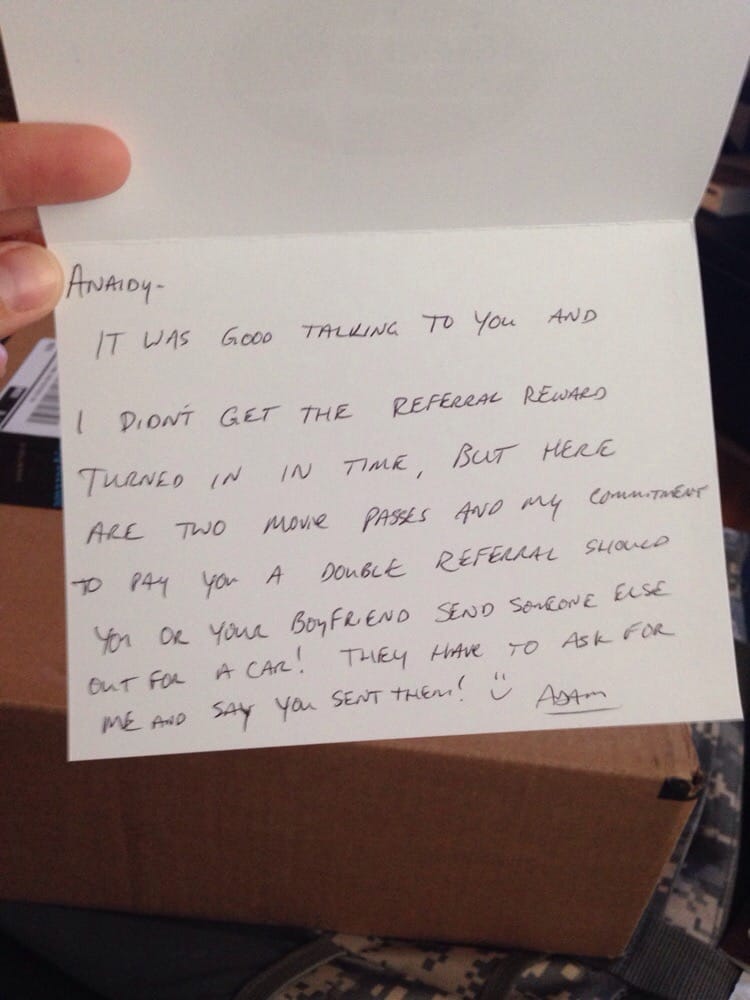 ANAIDY-
IT WAS GOOD TALKING TO YOU AND
I DIDN'T GET THE REFERRAL REWARD
TURNED IN IN TIME, BUT HERE
ARE TWO MOVIE PASSES AND MY COMMITMENT
TO PAY YOU A DOUBLE REFERRAL SHOULD
YOU OR YOUR BOYFRIEND SEND SOMEONE ELSE
OUT FOR A CAR! THEY HAVE TO ASK FOR
ME AND SAY YOU SENT THEM! Ü ADAM